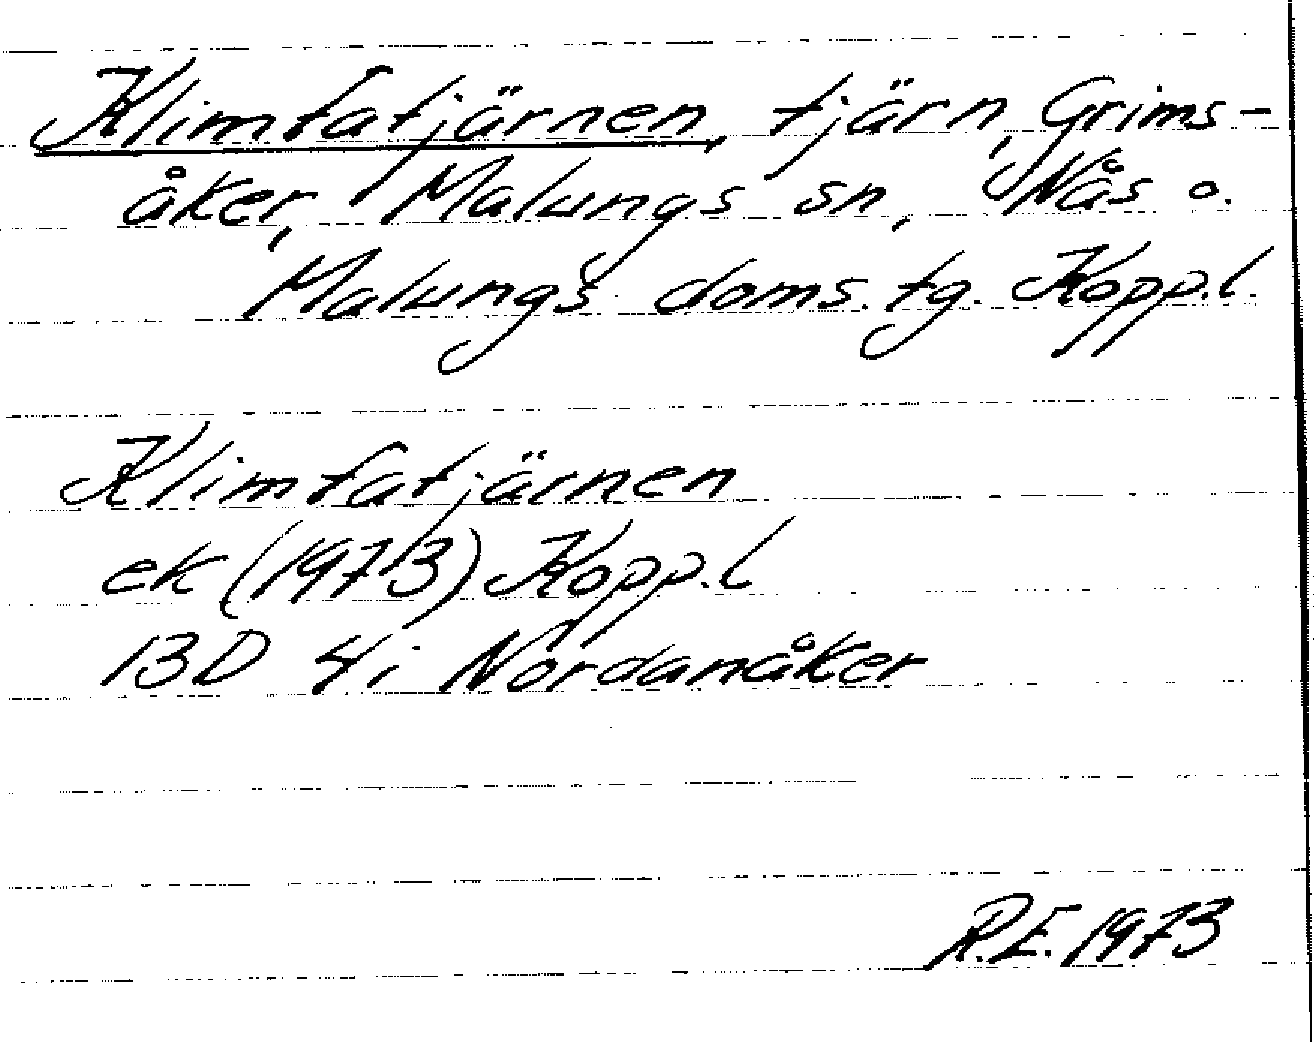 Klimtatjärnen, tjärn, Grims-
åker, Malungs sn, Nås o.
Malungs doms. tg. Kopp.l.
Klimtatjärnen
ek (1973) Kopp.l
13D 4i Nordanåker
R.E. 1973